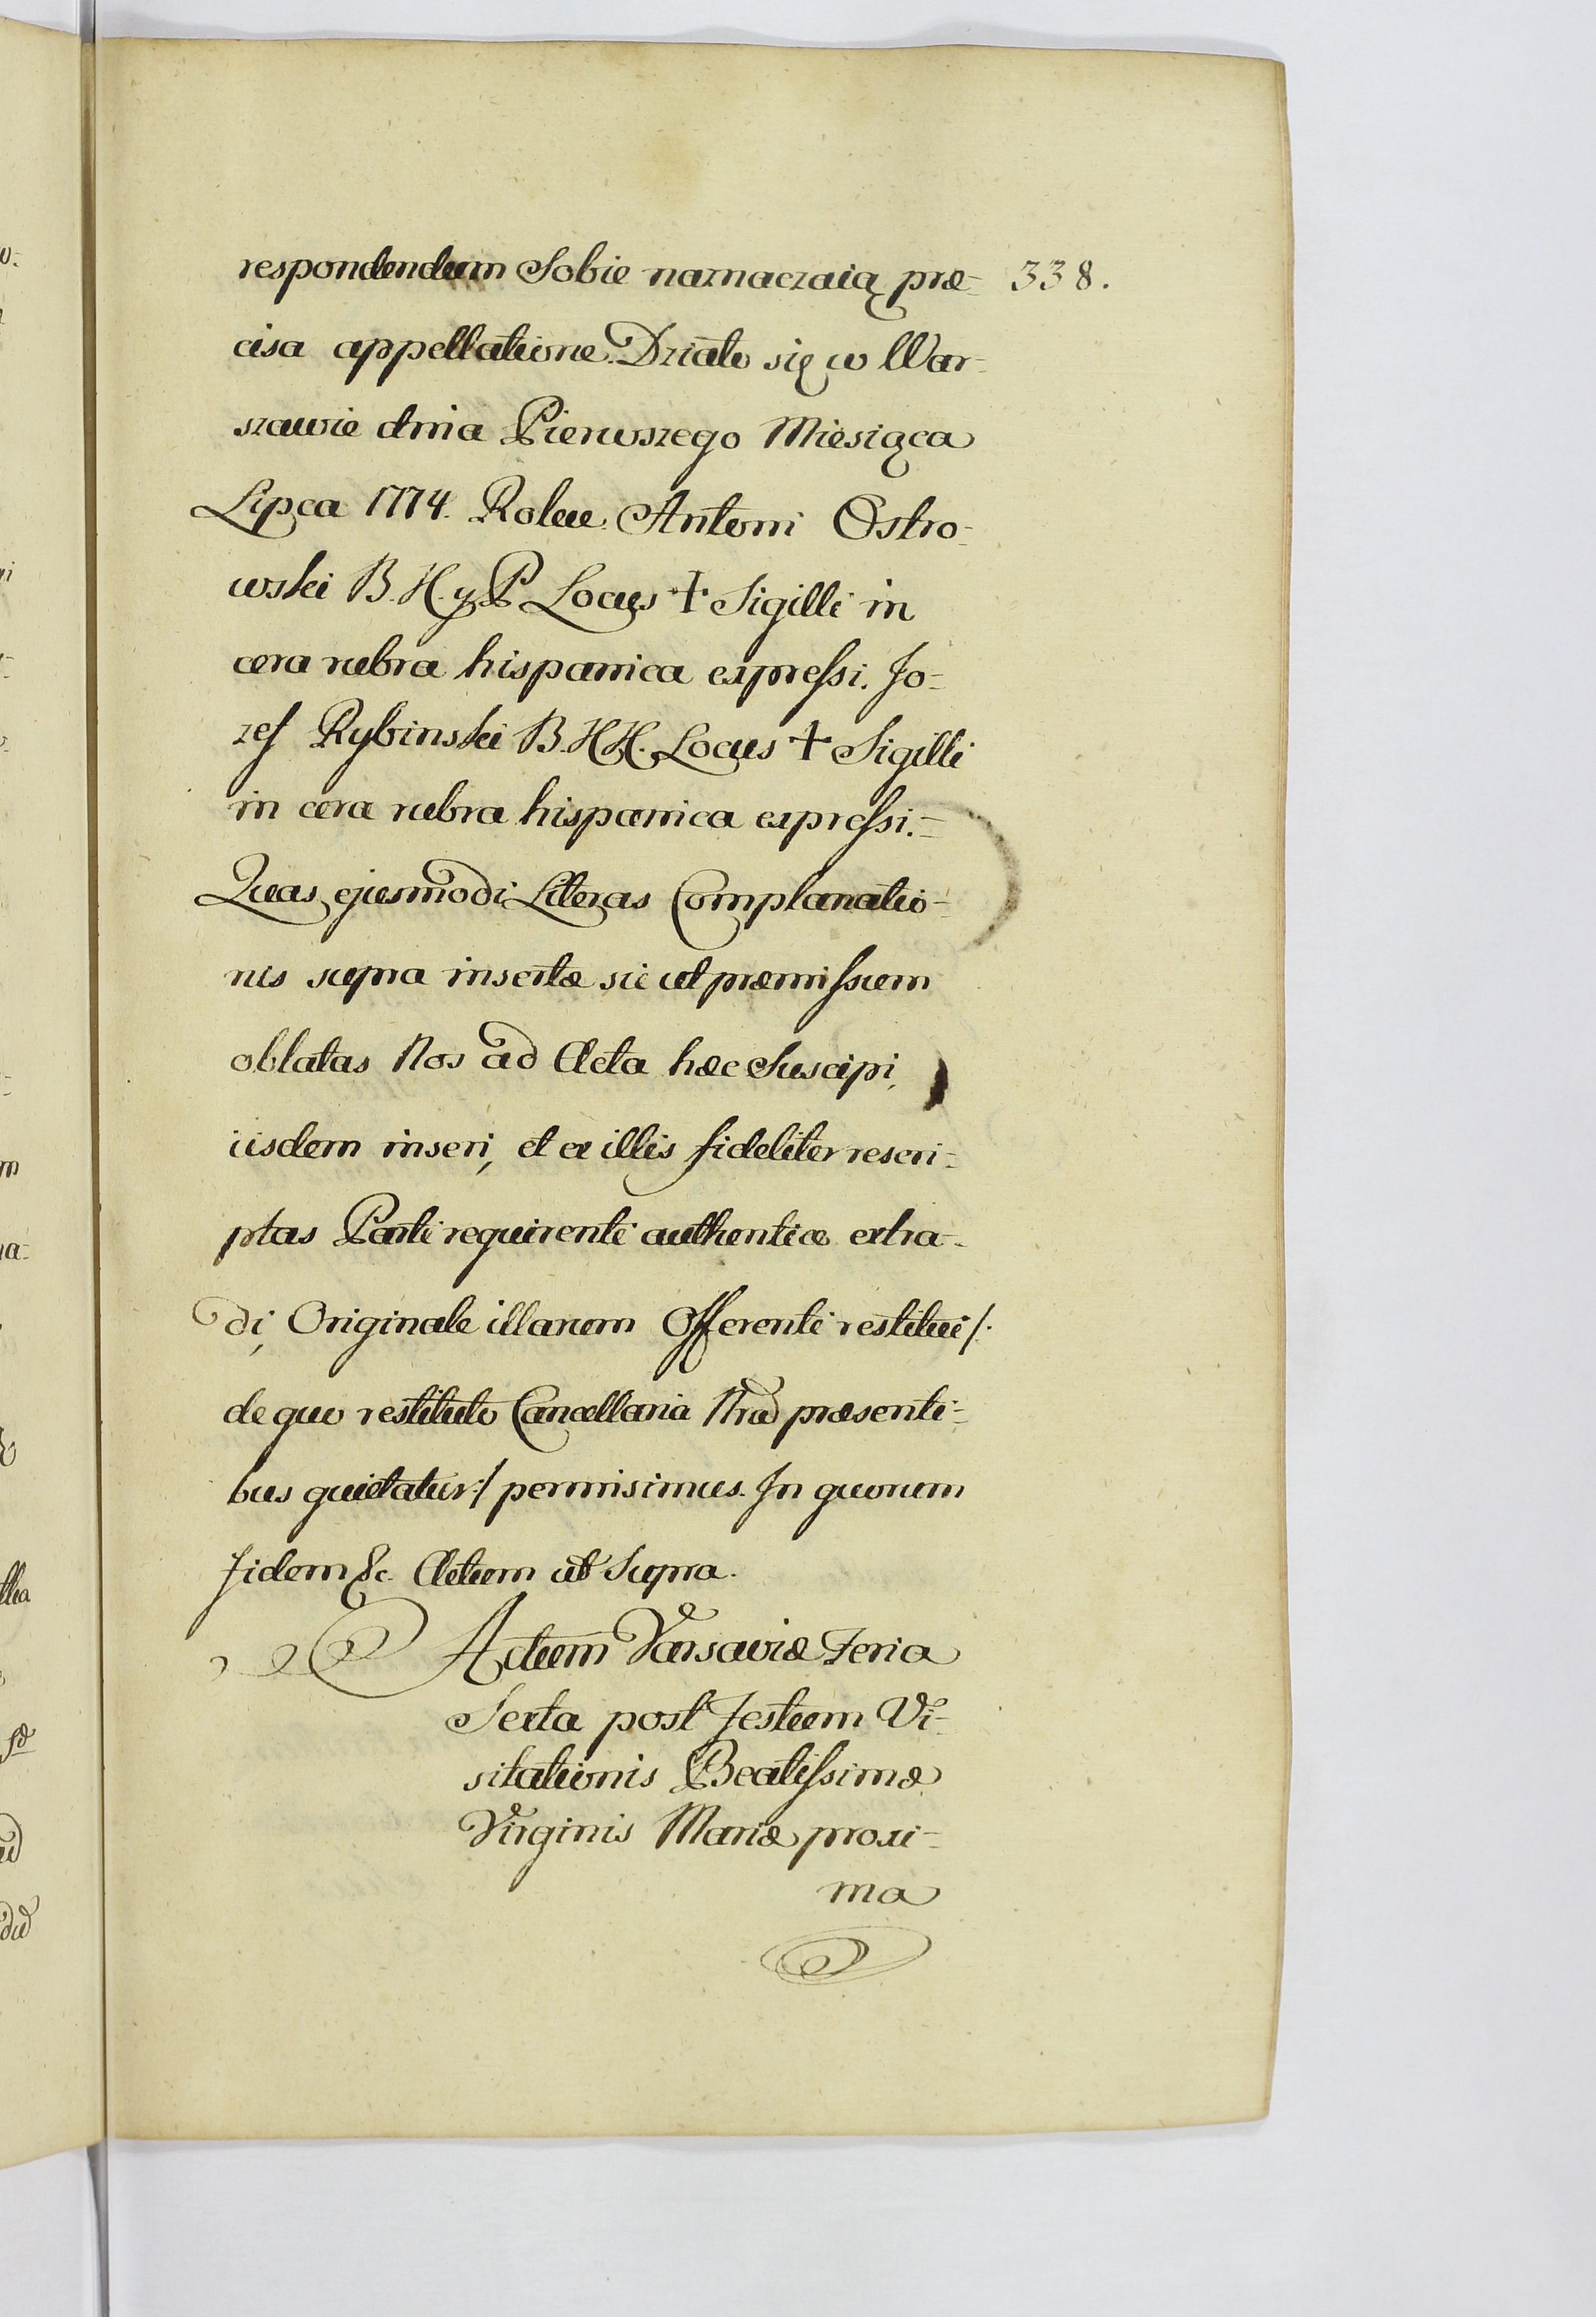 respondendum Sobie naznaczaią præ= 338.
cisa appellatione. Działo się w War=
szawie dnia Pierwszego Miesiąca
Lipca 1774. Roku. Antoni Ostro=
wski B. K. y P. Locus + Sigilli in
cera rubra hispanica expressi. Jo=
zef Rybinski B. K K. Locus + Sigilli
in cera rubra hispanica expressi.=
Quas ejusmodi Literas Complanatio=
nis supra insertæ sic ut præmissum
oblatas Nos ad Acta hæc Suscipi,
iisdem inseri, et ex illis fideliter rescri=
ptas Parti requirenti authentice extra=
di, Originale illarum Offerenti restitui /:
de quo restituto Cancellaria Nra præsenti=
bus quietatur :/ permisimus. In quorum
fidem &c. Actum ut Supra.
Actum Varsaviæ Feria
Sexta post Festum Vi=
sitationis Beatissimæ
Virginis Mariæ proxi=
ma